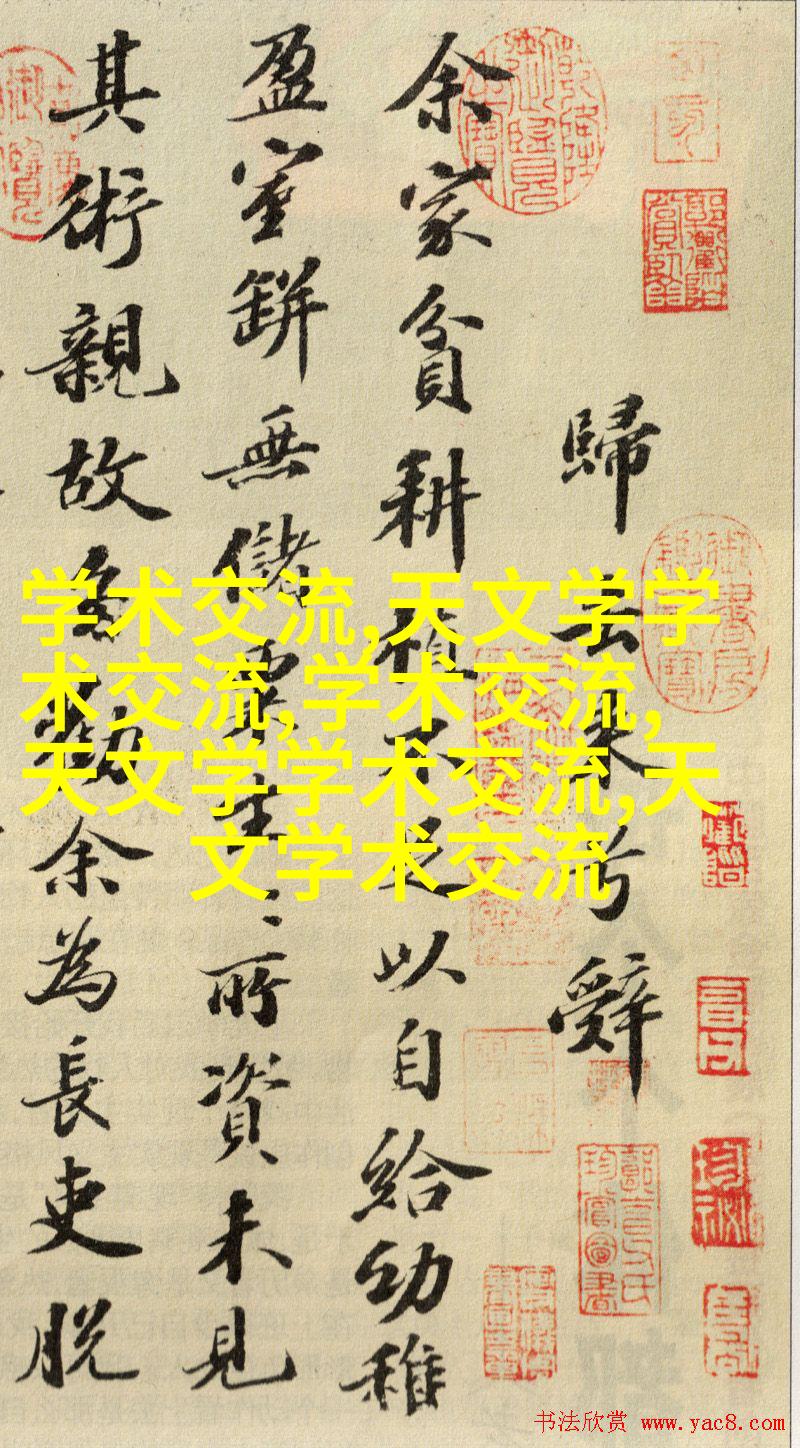 歸去来兮辭
余家貧耕植不足以自給幼稚
盈室缾無儲粟生〻所資未見
其術親故多勸余為長吏脱
学术交流,天文学学
术交流,学术交流,
天文学学术交流,天
文学术交流
书法欣赏 www.yac8.com